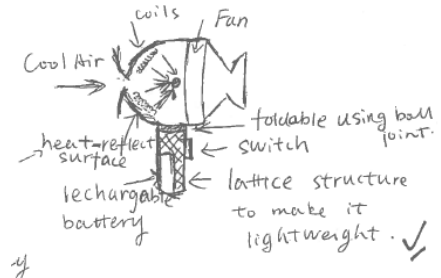 coils
Fan
Cool Air
foldable using ball
joint.
heat-reflect
surface
switch
rechargable
battery
lattice structure
to make it
lightweight.
y